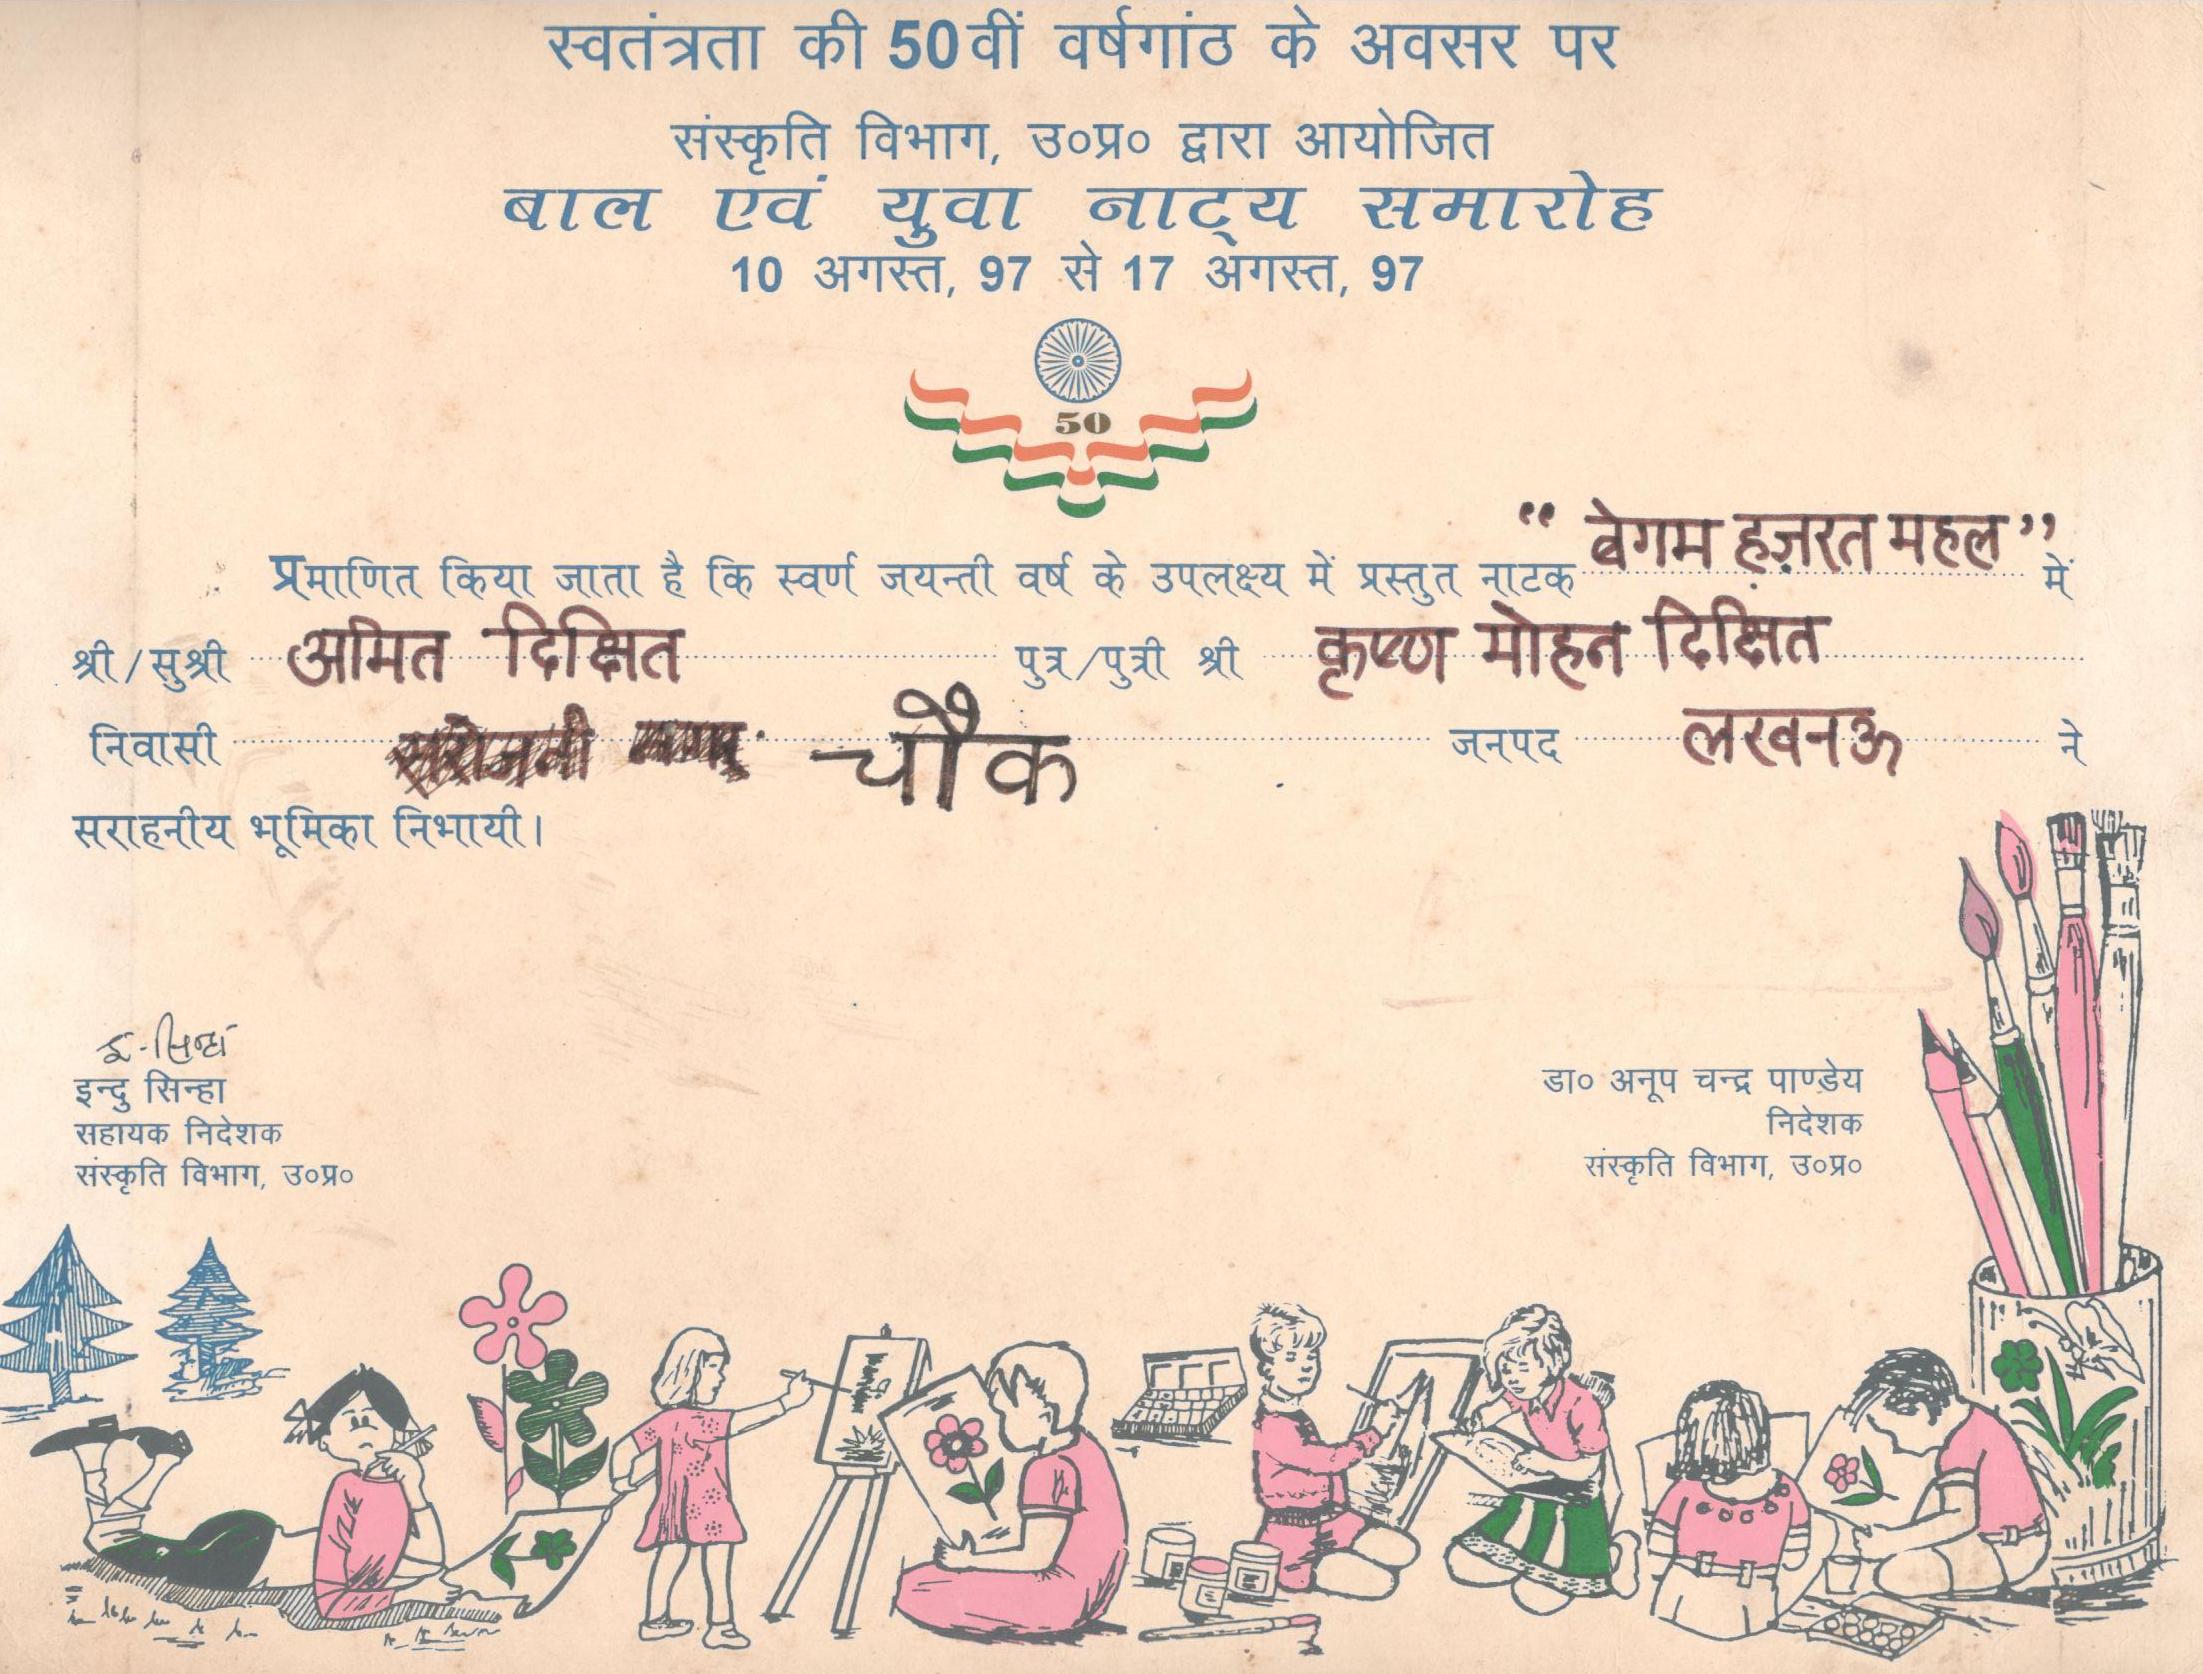 स्वतंत्रता की 50वीं वर्षगांठ के अवसर पर
संस्कृति विभाग, उ०प्र० द्वारा आयोजित
बाल एवं युवा नाट्य समारोह
10 अगस्त, 97 से 17 अगस्त, 97
50
प्रमाणित किया जाता है कि स्वर्ण जयन्ती वर्ष के उपलक्ष्य में प्रस्तुत नाटक “बेगम हज़रत महल” में
श्री/सुश्री अमित दिक्षित पुत्र/पुत्री श्री कृष्ण मोहन दिक्षित
निवासी चौक जनपद लखनऊ ने
सराहनीय भूमिका निभायी।
इ-सिन्हा
इन्दु सिन्हा
सहायक निदेशक
संस्कृति विभाग, उ०प्र०
डा० अनूप चन्द्र पाण्डेय
निदेशक
संस्कृति विभाग, उ०प्र०